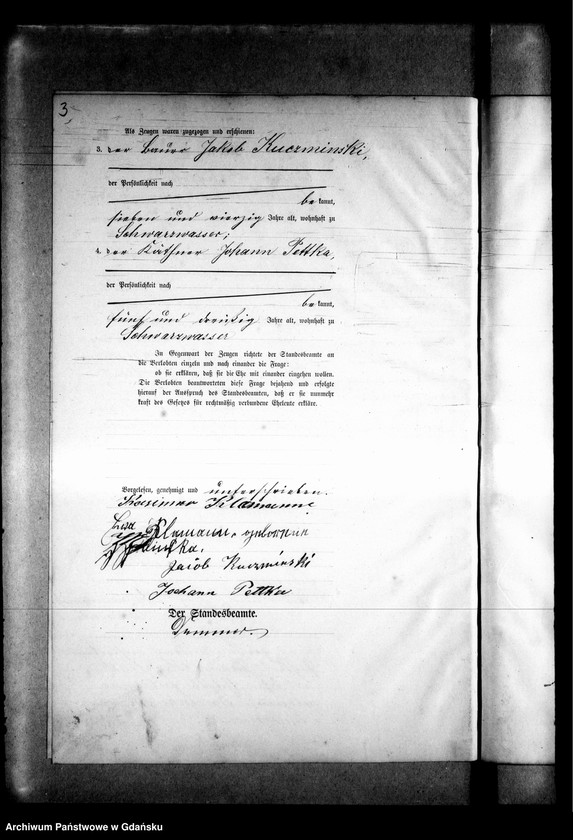 3
Als Zeugen waren zugezogen und erschienen:
3. der Bauer Jakob Kuczminski,
der Persönlichkeit nach
bekannt,
sieben und vierzig Jahre alt, wohnhaft zu
Schwarzwasser;
4. der Käthner Johann Pettka,
der Persönlichkeit nach
bekannt,
fünf und dreißig Jahre alt, wohnhaft zu
Schwarzwasser
In Gegenwart der Zeugen richtete der Standesbeamte an
die Verlobten einzeln und nach einander die Frage:
ob sie erklären, daß sie die Ehe mit einander eingehen wollen.
Die Verlobten beantworteten diese Frage bejahend und erfolgte
hierauf der Ausspruch des Standesbeamten, daß er sie nunmehr
kraft des Gesetzes für rechtmäßig verbundene Eheleute erkläre.
Vorgelesen, genehmigt und unterschrieben.
Klamann
Klamann, geborene
Jacob Kuczminski
Johann Pettka
Der Standesbeamte.
Archiwum Państwowe w Gdańsku